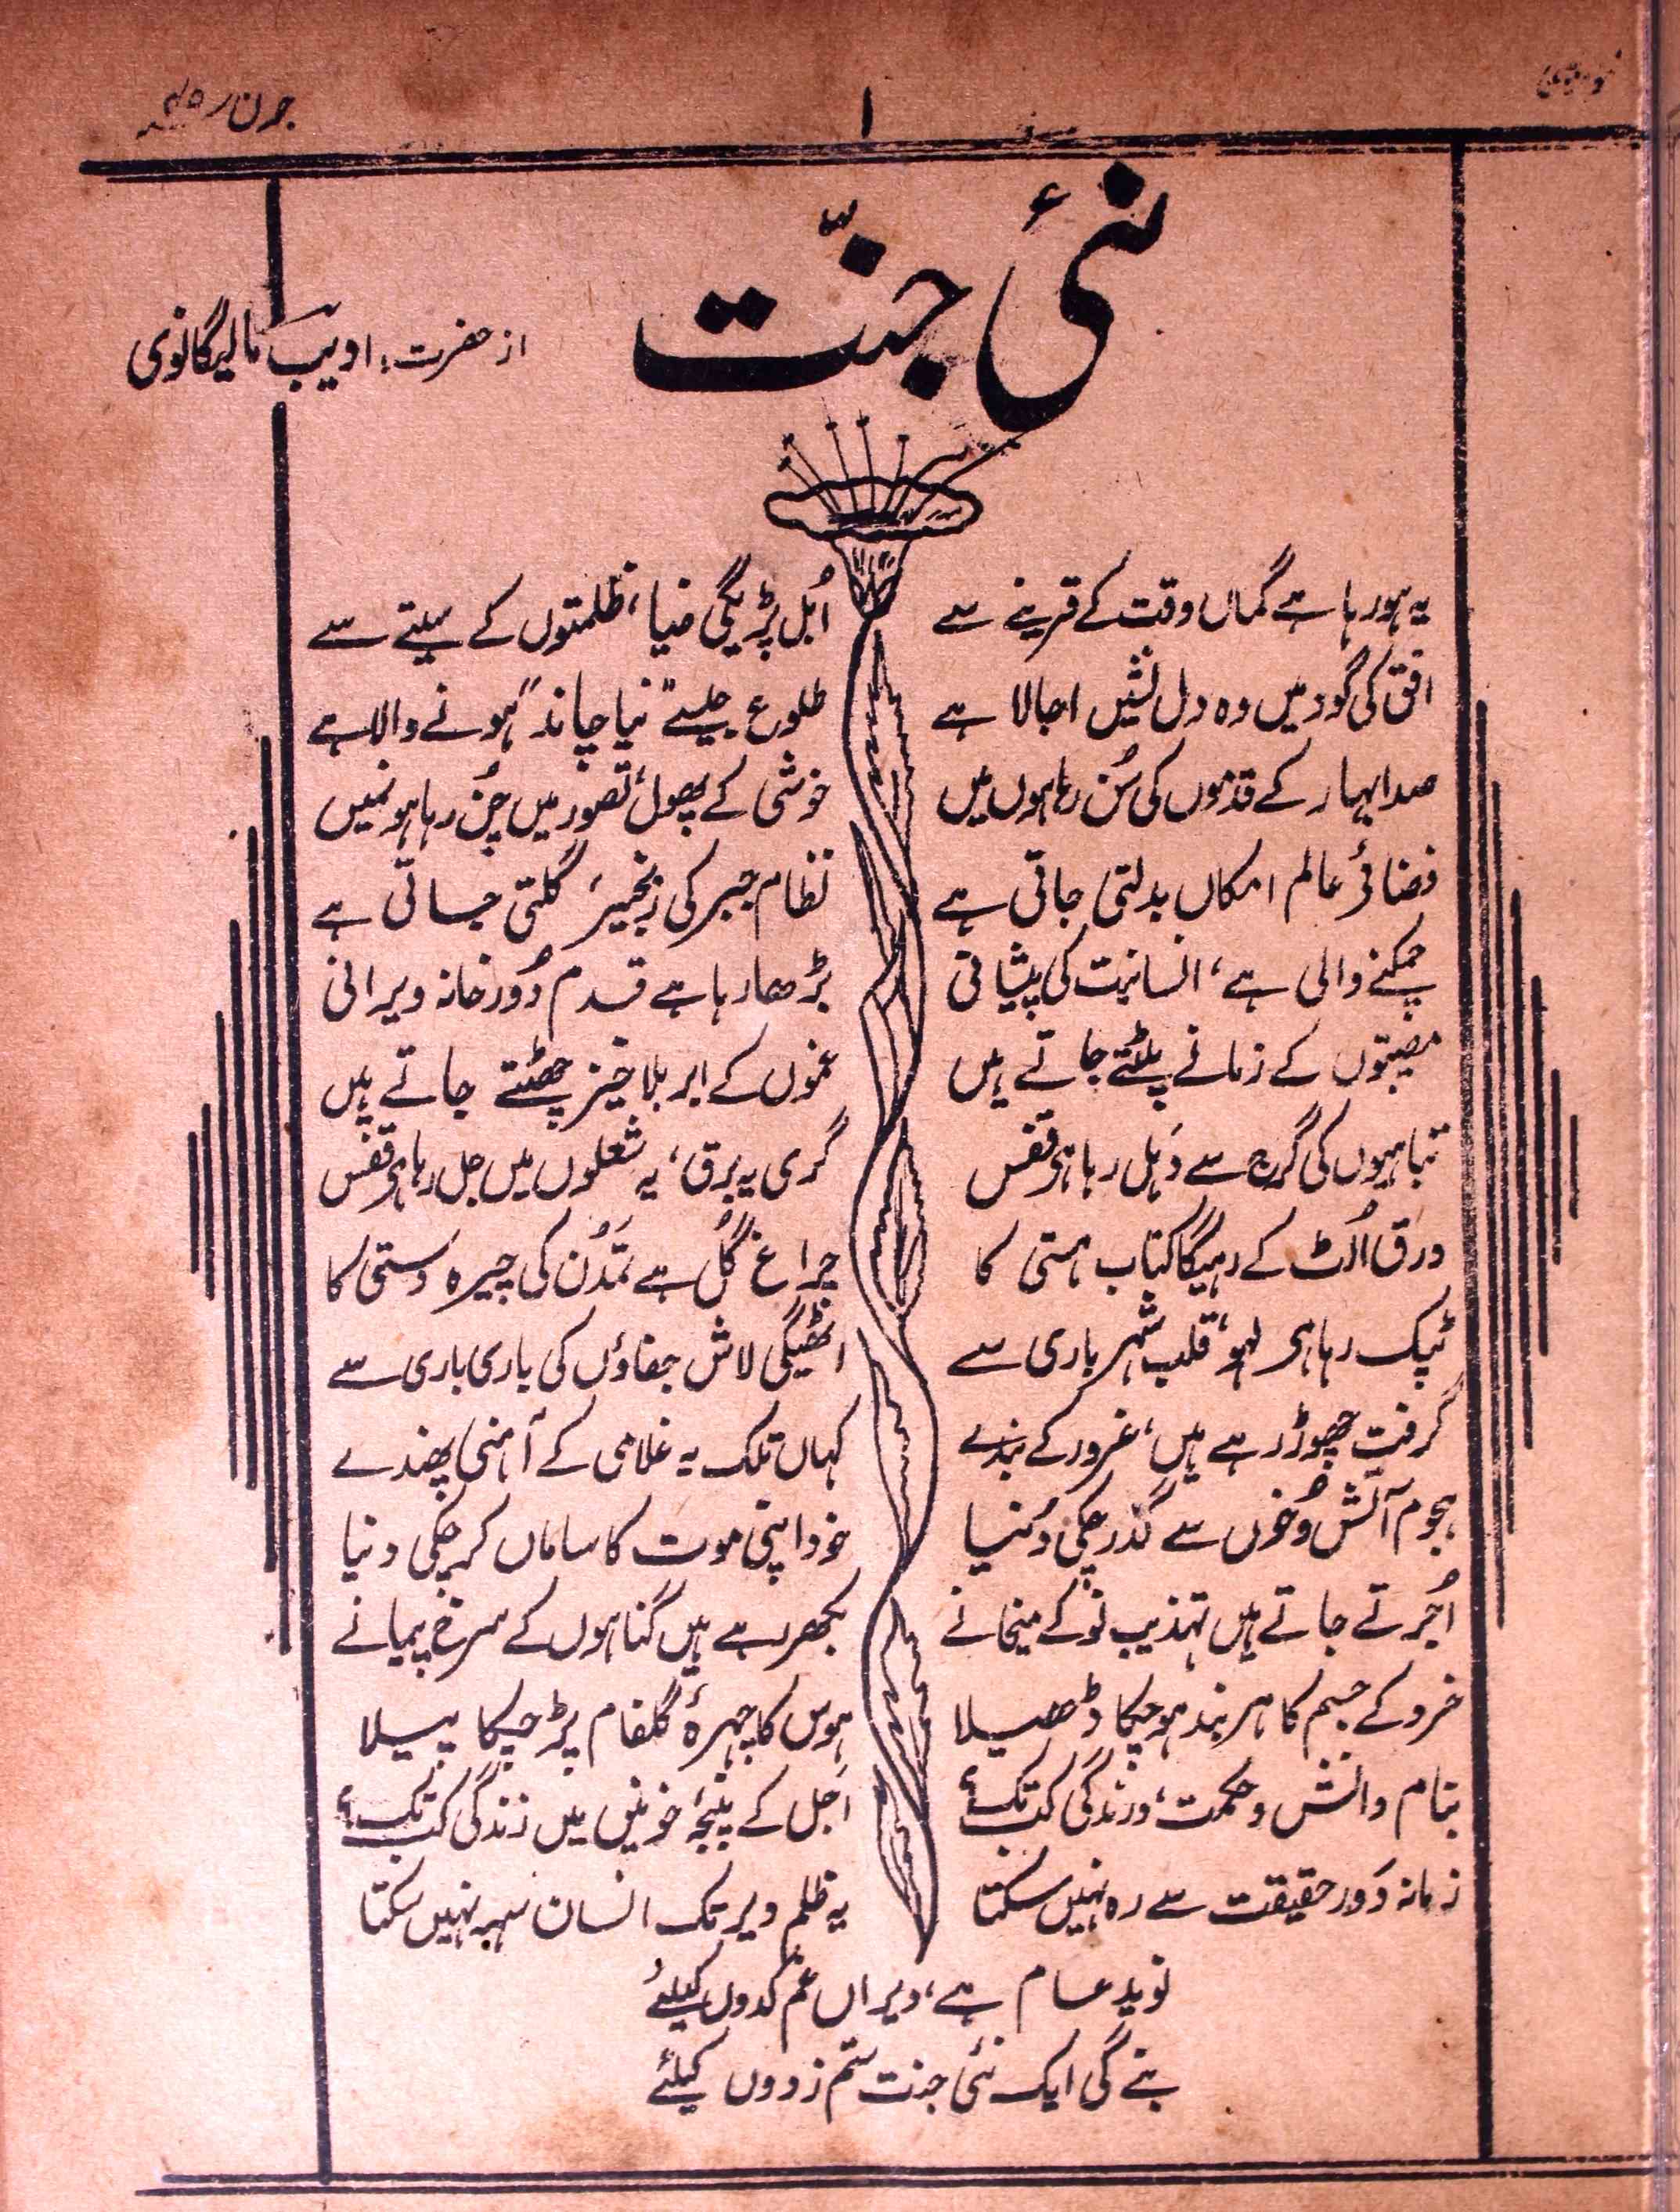 جون ۵۲ء
۱
نئی جنّت
از حضرت: ادیب مالیگانوی
یہ ہو رہا ہے گماں وقت کے قرینے سے
اُبل پڑیگی ضیا، ظلمتوں کے سینے سے
افق کی گود میں وہ دل نشیں اجالا ہے
طلوع جیسے "نیا چاند" ہونے والا ہے
صدا بہار کے قدموں کی سُن رہا ہوں میں
خوشی کے پھول، تصور میں چُن رہا ہوں میں
فضائے عالم امکاں بدلتی جاتی ہے
نظام جبر کی زنجیر، گلتی جاتی ہے
چمکنے والی ہے، انسانیت کی پیشانی
بڑھا رہا ہے قدم دُور خانہ ویرانی
مصیبتوں کے زمانے پلٹتے جاتے ہیں
غموں کے ابر بلا خیز چھٹتے جاتے ہیں
تباہیوں کی گرج سے دَہل رہا ہی قفس
گری یہ برق، یہ شعلوں میں جل رہا ہی قفس
ورق اُلٹ کے رہیگا کتاب ہستی کا
چراغ گُل ہے تمَدُن کی چیرہ دستی کا
ٹپک رہا ہی لہو، قلب شہر یاری سے
اٹھیگی لاش جفاؤں کی باری باری سے
گرفت چھوڑ رہے ہیں، غرور کے بندے
کہاں تلک یہ غلامی کے آہنی پھندے
ہجوم آتش و خُوں سے گذر چکی دُنیا
خود اپنی موت کا ساماں کر چکی دنیا
اُجڑتے جاتے ہیں تہذیب نَو کے میخانے
بکھر رہے ہیں گناہوں کے سرخ پیمانے
خرد کے جسم کا ہر بند ہو چکا ڈھیلا
ہوس کا چہرۂ گلفام پڑ چکا پیلا
بنام دانش و حکمت، درندگی کب تک؟
اَجل کے پنجۂ خونیں میں زندگی کب تک؟
زمانہ دَور حقیقت سے رہ نہیں سکتا
یہ ظلم دیر تک انسان سہہ نہیں سکتا
نوید عام ہے، ویراں غم کدوں کیلئے
بنے گی ایک نئی جنت ستم زدوں کیلئے